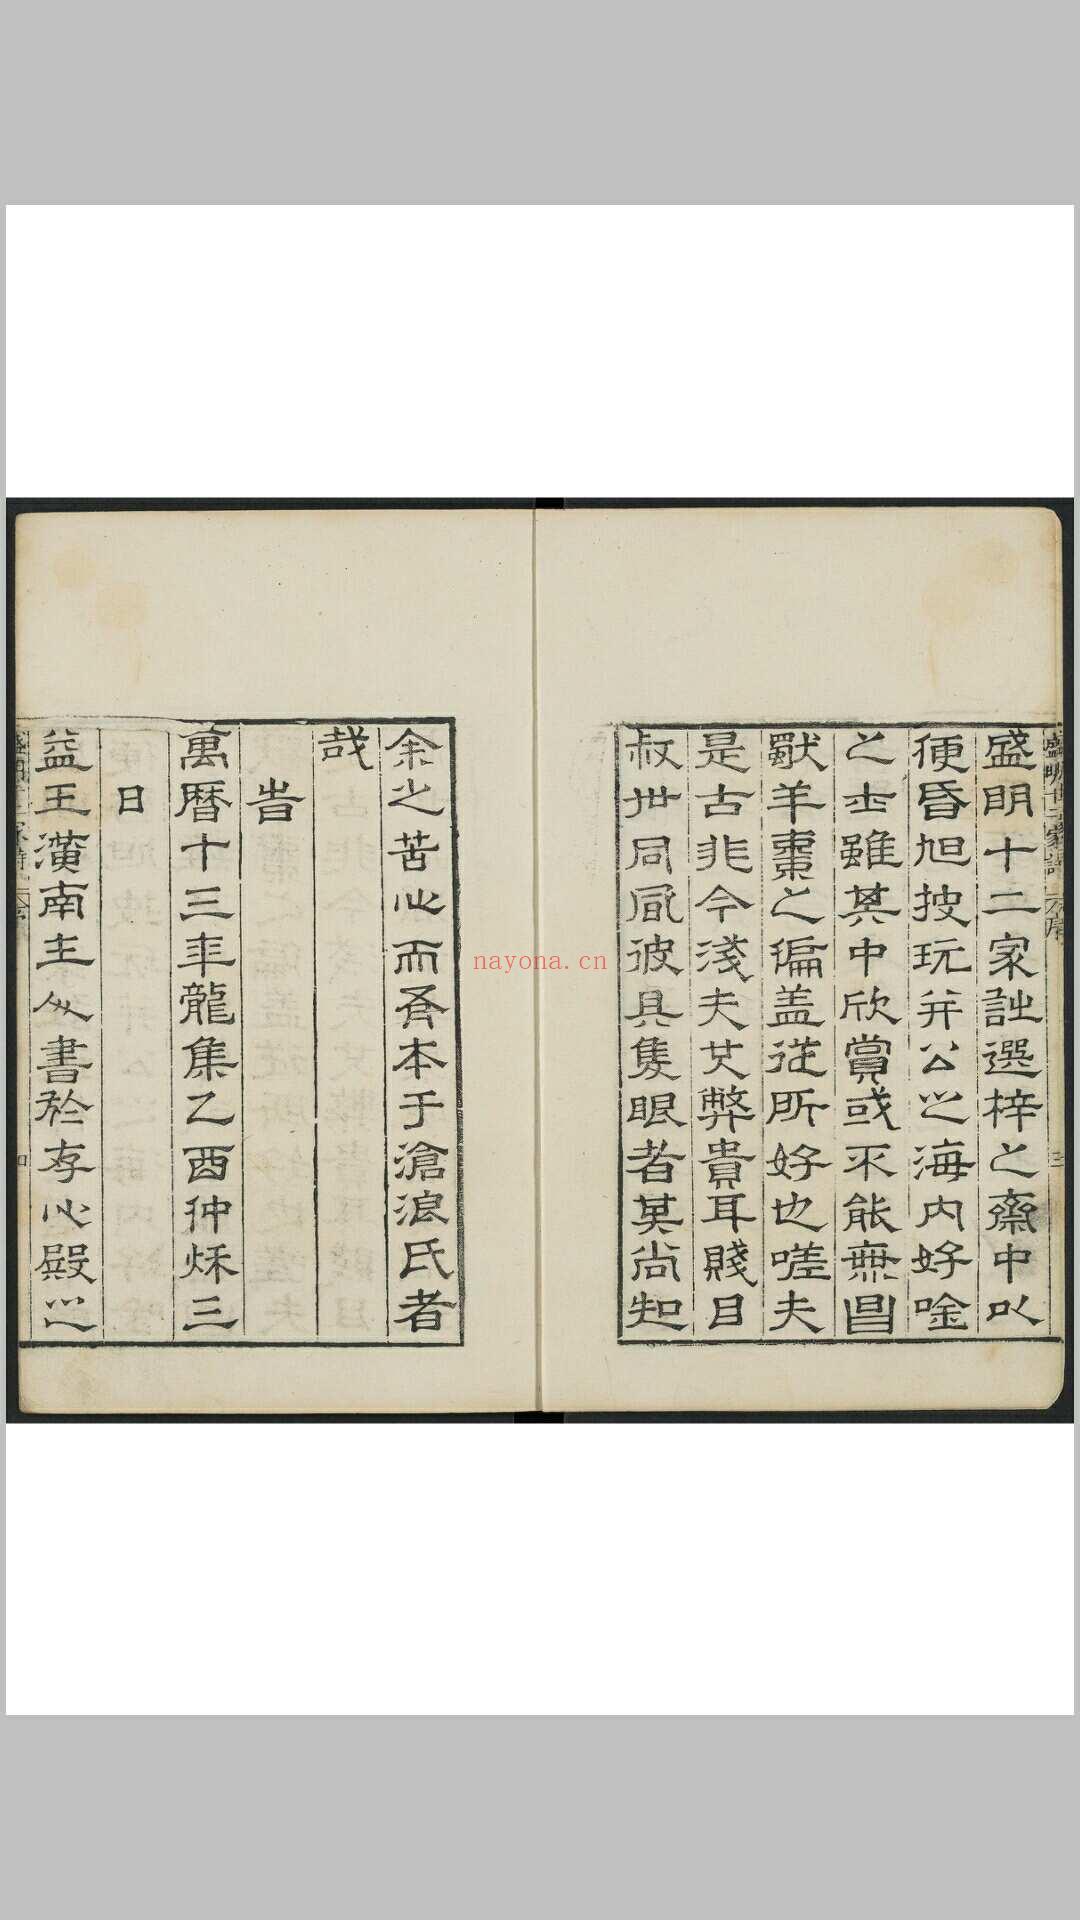 盛明十二家詩選梓之齋中以
便昏旭披玩并公之海内好唫
之士雖其中欣賞或不能無昌
歜羊棗之偏盖從所好也嗟夫
是古非今淺夫其弊貴耳賤目
叔世同風彼具隻眼者其尚知
余之苦心而有本于滄浪氏者
哉
旹
萬暦十三年龍集乙酉仲秋三
日
益王潢南主人書於存心殿之
nayona.cn